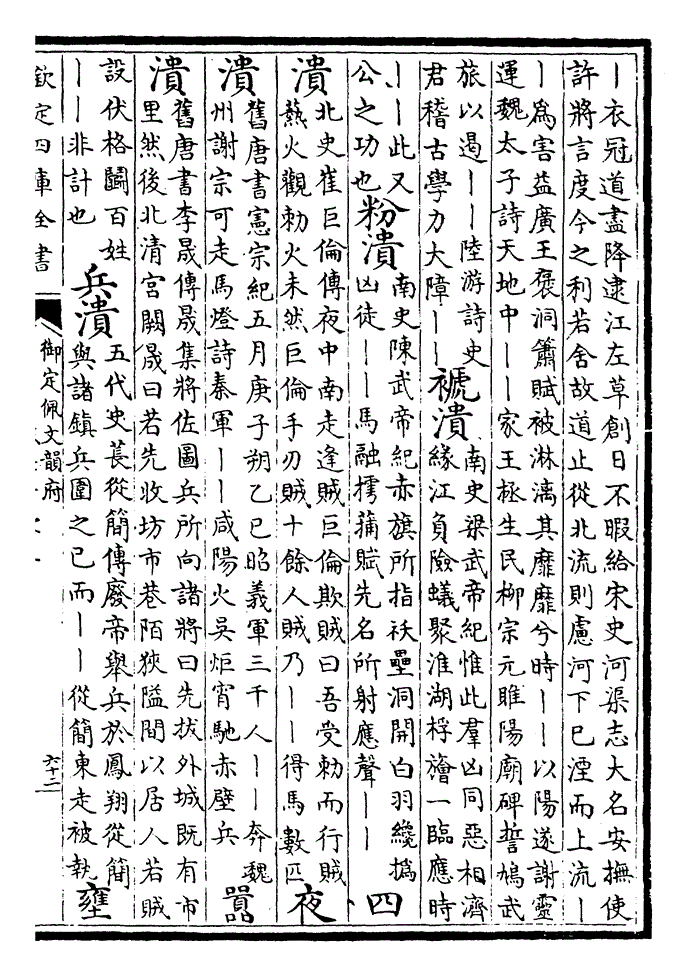 ｜衣冠道盡降逮江左草創日不暇給宋史河渠志大名安撫使
許將言度今之利若舍故道止從北流則慮河下已湮而上流｜
｜為害益廣王褒洞簫賦被淋漓其靡靡兮時｜｜以陽遂謝靈
運魏太子詩天地中｜｜家王極生民柳宗元睢陽廟碑誓鳩武
旅以遏｜｜陸游詩史
君稽古學力大障｜｜
褫潰
南史梁武帝紀惟此羣凶同惡相濟
緣江負險蟻聚淮湖桴艫一臨應時
｜｜此又
公之功也
粉潰
南史陳武帝紀赤旗所指祅壘洞開白羽纔撝
凶徒｜｜馬融摴蒲賦先名所射應聲｜｜
四
潰
北史崔巨倫傳夜中南走逢賊巨倫欺賊曰吾受勅而行賊
爇火觀勅火未然巨倫手刃賊十餘人賊乃｜｜得馬數匹
夜
潰
舊唐書憲宗紀五月庚子朔乙巳昭義軍三千人｜｜奔魏
州謝宗可走馬燈詩秦軍｜｜咸陽火吳炬宵馳赤壁兵
嚻
潰
舊唐書李晟傳晟集將佐圖兵所向諸將曰先拔外城既有市
里然後北清宮闕晟曰若先收坊市巷陌狹隘間以居人若賊
設伏格鬭百姓
｜｜非計也
兵潰
五代史萇從簡傳廢帝舉兵於鳳翔從簡
與諸鎮兵圍之已而｜｜從簡東走被執
壅
欽定四庫全書
御定佩文韻府
六十二